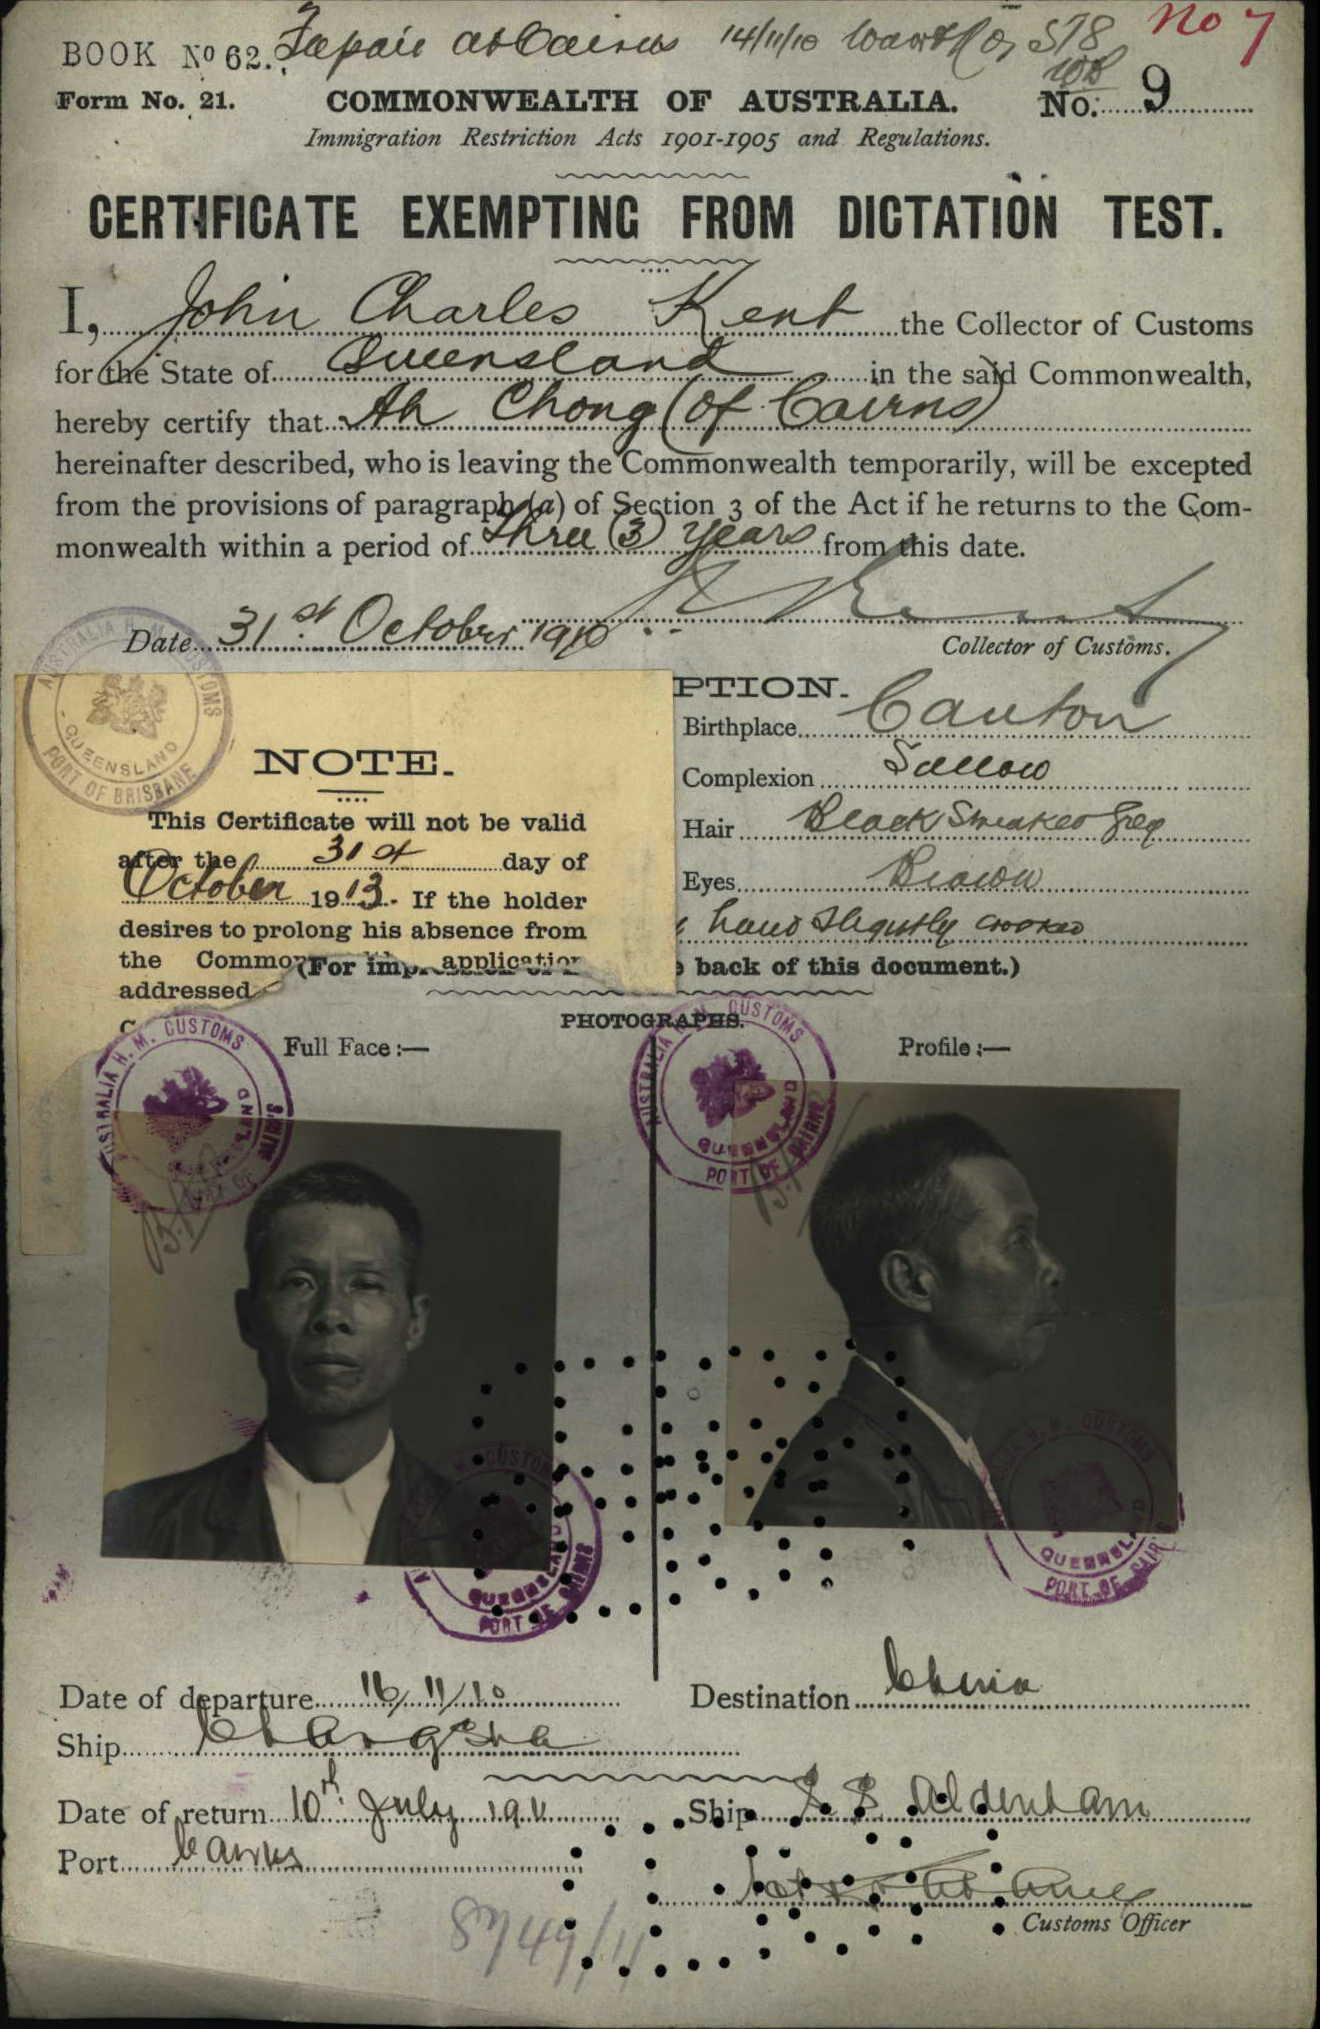 BOOK No 62. 14/11/10 578 No 7
Form No. 21. COMMONWEALTH OF AUSTRALIA. No. 9
Immigration Restriction Acts 1901-1905 and Regulations.
CERTIFICATE EXEMPTING FROM DICTATION TEST.
I, John Charles Kent the Collector of Customs
for the State of Queensland in the said Commonwealth,
hereby certify that Ah Chong (of Cairns)
hereinafter described, who is leaving the Commonwealth temporarily, will be excepted
from the provisions of paragraph (a) of Section 3 of the Act if he returns to the Com-
monwealth within a period of three (3) years from this date.
Date 31st October 1910
Collector of Customs.
AUSTRALIA H. M. CUSTOMS QUEENSLAND PORT OF BRISBANE
PTION.
Birthplace Canton
Complexion Sallow
Hair Black Streaked Grey
Eyes Brown
hand slightly crooked
NOTE.
This Certificate will not be valid
after the 31st day of
October 1913. If the holder
desires to prolong his absence from
the Commo application
addressed
(For imp back of this document.)
PHOTOGRAPHS.
Full Face:— Profile:—
AUSTRALIA H. M. CUSTOMS QUEENSLAND PORT OF CAIRNS
AUSTRALIA H. M. CUSTOMS QUEENSLAND PORT OF CAIRNS
CUSTOMS QUEENSLAND PORT OF CAIRNS
H. M. CUSTOMS QUEENSLAND PORT OF CAIRNS
Date of departure 16/11/10 Destination China
Ship Changsha
Date of return 10th July 1911 Ship S S Aldenham
Port Cairns
Customs Officer
8749/11